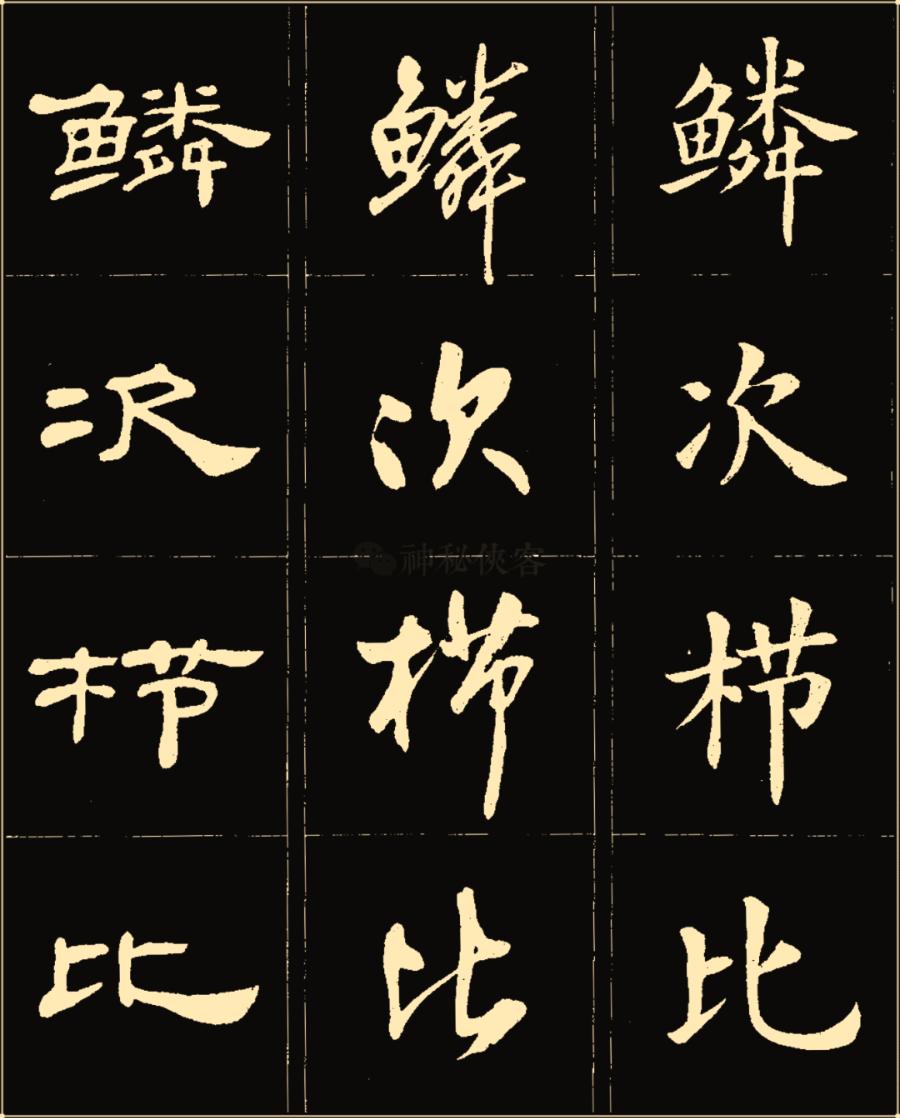 鳞次栉比
鳞次栉比
鳞次栉比
神秘俠客